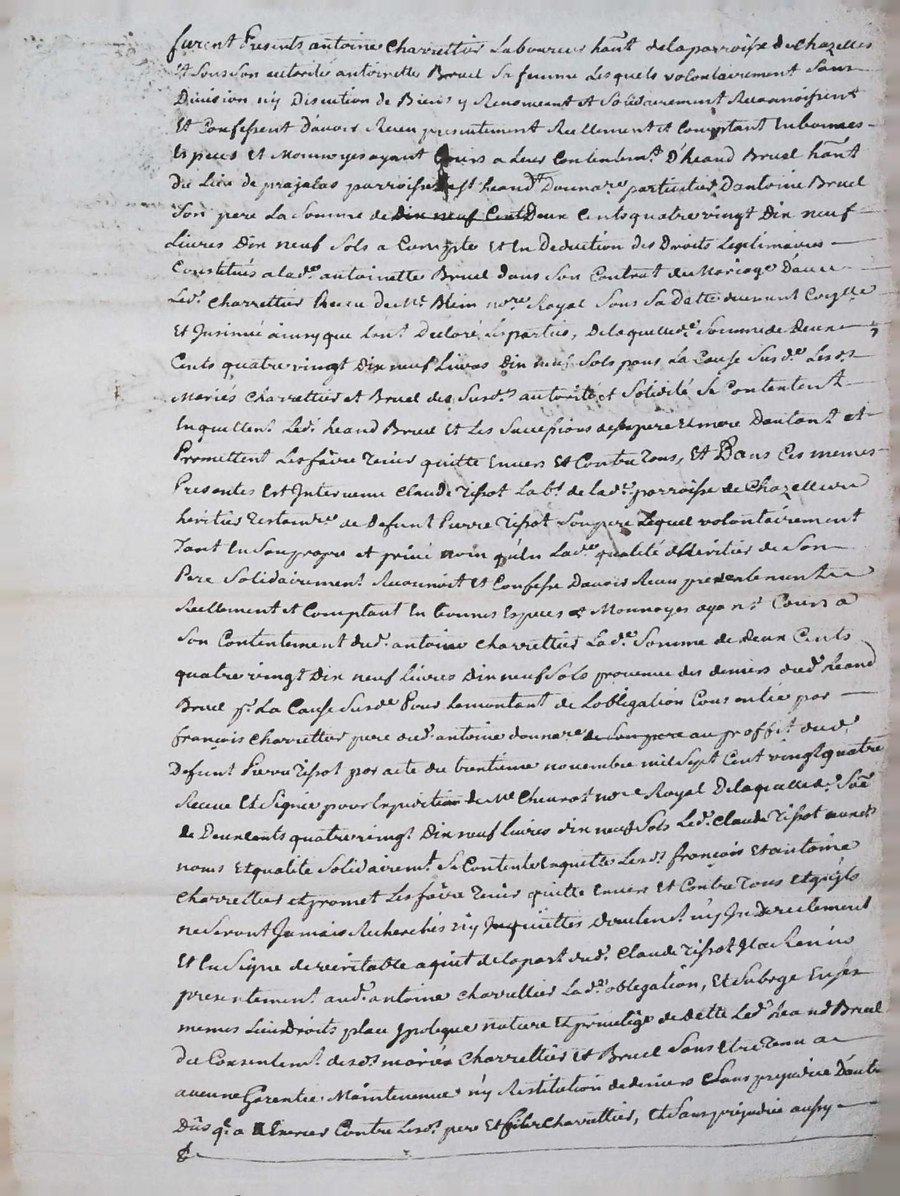 furent Presents antoine Charrettier Laboureur hant. de la parroisse de Chazelles
Et sous son autorité antoinette Bruel sa femme Lesquels volontairement sans
Division n'y Discution de Biens y Renonceant et solidairement Reconnoissent
Et Confessent D'avoir Receu presentement Reellement et Comptant En bonnes
Especes et Monnoyes ayant Cours a Leur Contentem.t D'heand Bruel hant
Du Lieu de prajalas parroisse heand Donnare. particulier D'antoine Bruel
Son pere La Somme de Din neuf Cent Deux Cents quatre vingt Din neuf
Livres Din neuf Sols a Compte et En Deduction des Droits Legitimaires
Constitués a lad.e antoinette Bruel dans Son Contrat de Mariage D'avec
Led. Charrettier Receu de M.e Blein no.re Royal Sous Sa Datte
Et Insinué ainsy que Lont Declaré Les parties, De laquelle d.e Somme de Deux
Cents quatre vingt Din neuf Livres Din neuf Sols pour La Cause Susd.e Lesd.s
Mariés Charrettier et Bruel des Susd.s autorité et Solidité Se Contentent
En quittent Led. heand Bruel Et Les Successions de ses pere Et mere Dautant et
Promettent Les faire Tenir quitte Envers Et Contre Tous, Et Dans Ces memes
Presentes Est Intervenu Claude Tissot Lab.r de lad.e parroisse de Chazelles
heritier Testam.re de Defunt Pierre Tissot Son pere Lequel volontairement
Tant En Son propre et privé nom qu'En Lad.e qualité d'heritier de Son
Pere Solidairement Reconnoit et Confesse D'avoir Receu presentement
Reellement et Comptant En bonnes Especes et Monnoyes ayant Cours a
Son Contentement dud. antoine Charrettier Lad.e Somme de Deux Cents
quatre vingt Din neuf Livres Din neuf Sols provenue des deniers dud. heand
Bruel p.r La Cause Susd.e Pour Le montant de L'obligation Consentie par
françois Charrettier pere dud. antoine donnare. de Son pere au proffit dud.
Defunt Pierre Tissot par acte du trentieme novembre mil Sept Cent vingt quatre
Receue Et Signée pour Expedition de Me no.re Royal De laquelle d.e Somme
de Deux Cents quatre vingt Din neuf Livres din neuf Sols Led. Claude Tissot aux d.s
noms Et qualité Solidairem.t Se Contente En quitte Lesd.s françois Et antoine
Charrettier et promet Les faire Tenir quitte Envers Et Contre Tous Et qu'ils
ne Seront Jamais Recherchés n'y Inquiettés directem.t n'y Indirectement
Et En Signe de veritable aquit de la part dud. Claude Tissot Il a Remis
presentement aud. antoine Charrettier Lad.e obligation, Et Subroge En Ses
memes Lieu Droits place Ipoteque nature Et privilege de Dette Led. heand Bruel
Du Consentem.t desd.s mariés Charrettier et Bruel Sans Etre Tenu a
aucune Garentie Maintenue n'y Restitution de deniers Et Sans prejudice D'autre
Dûs q.l a Exercer Contre Lesd.s pere Et fils Charrettier, Et Sans prejudice aussy
&